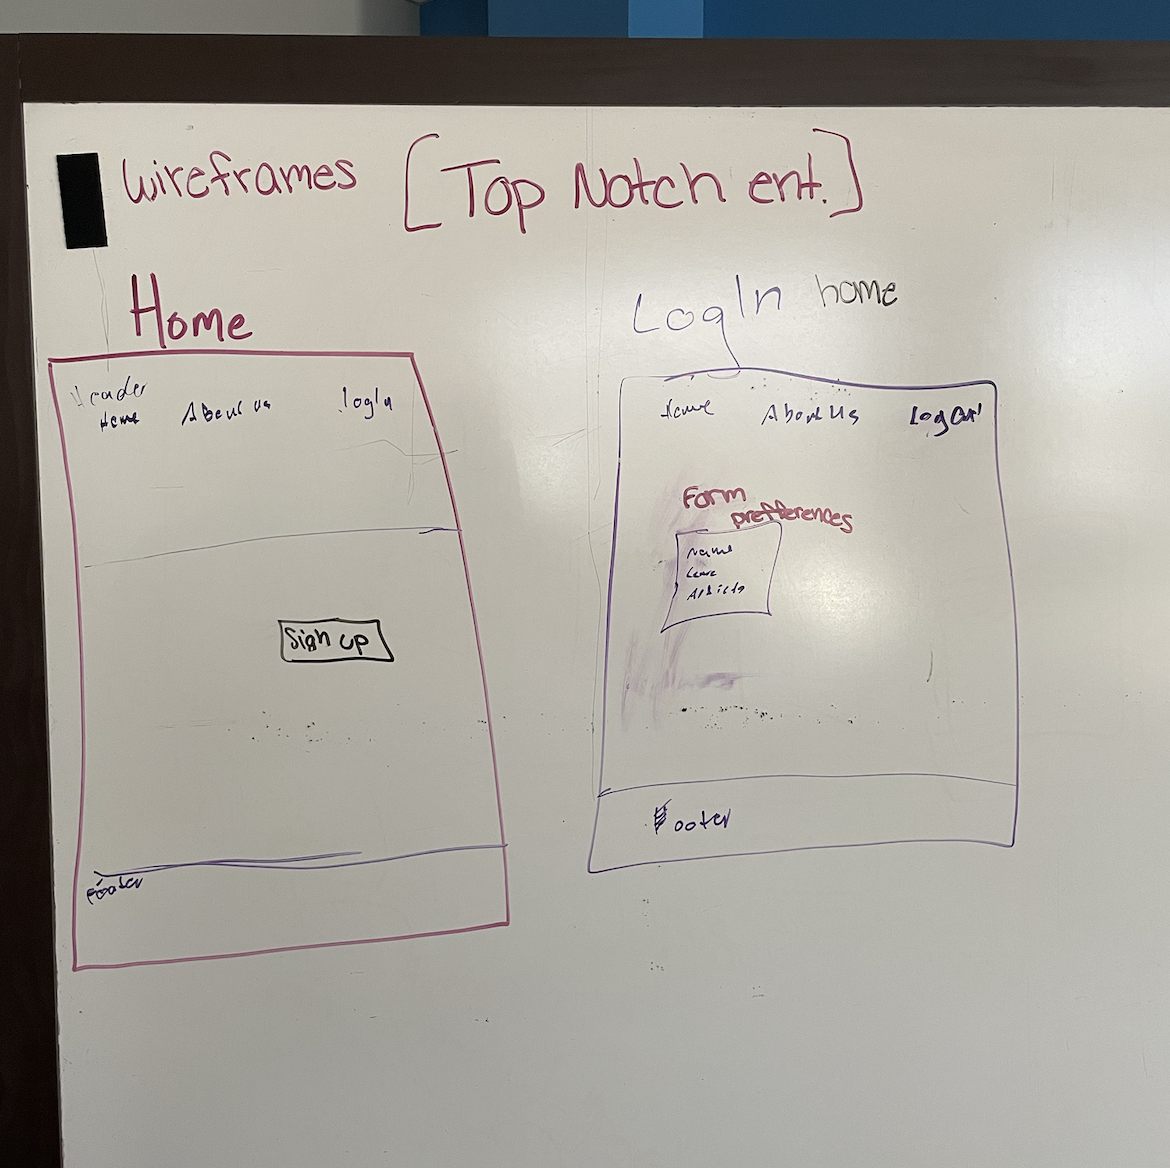 wireframes [Top Notch ent.]
Home
Header
Home About us LogIn
Sign up
Footer
LogIn home
Home About Us Logout
Form
prefferences
Name
Footer